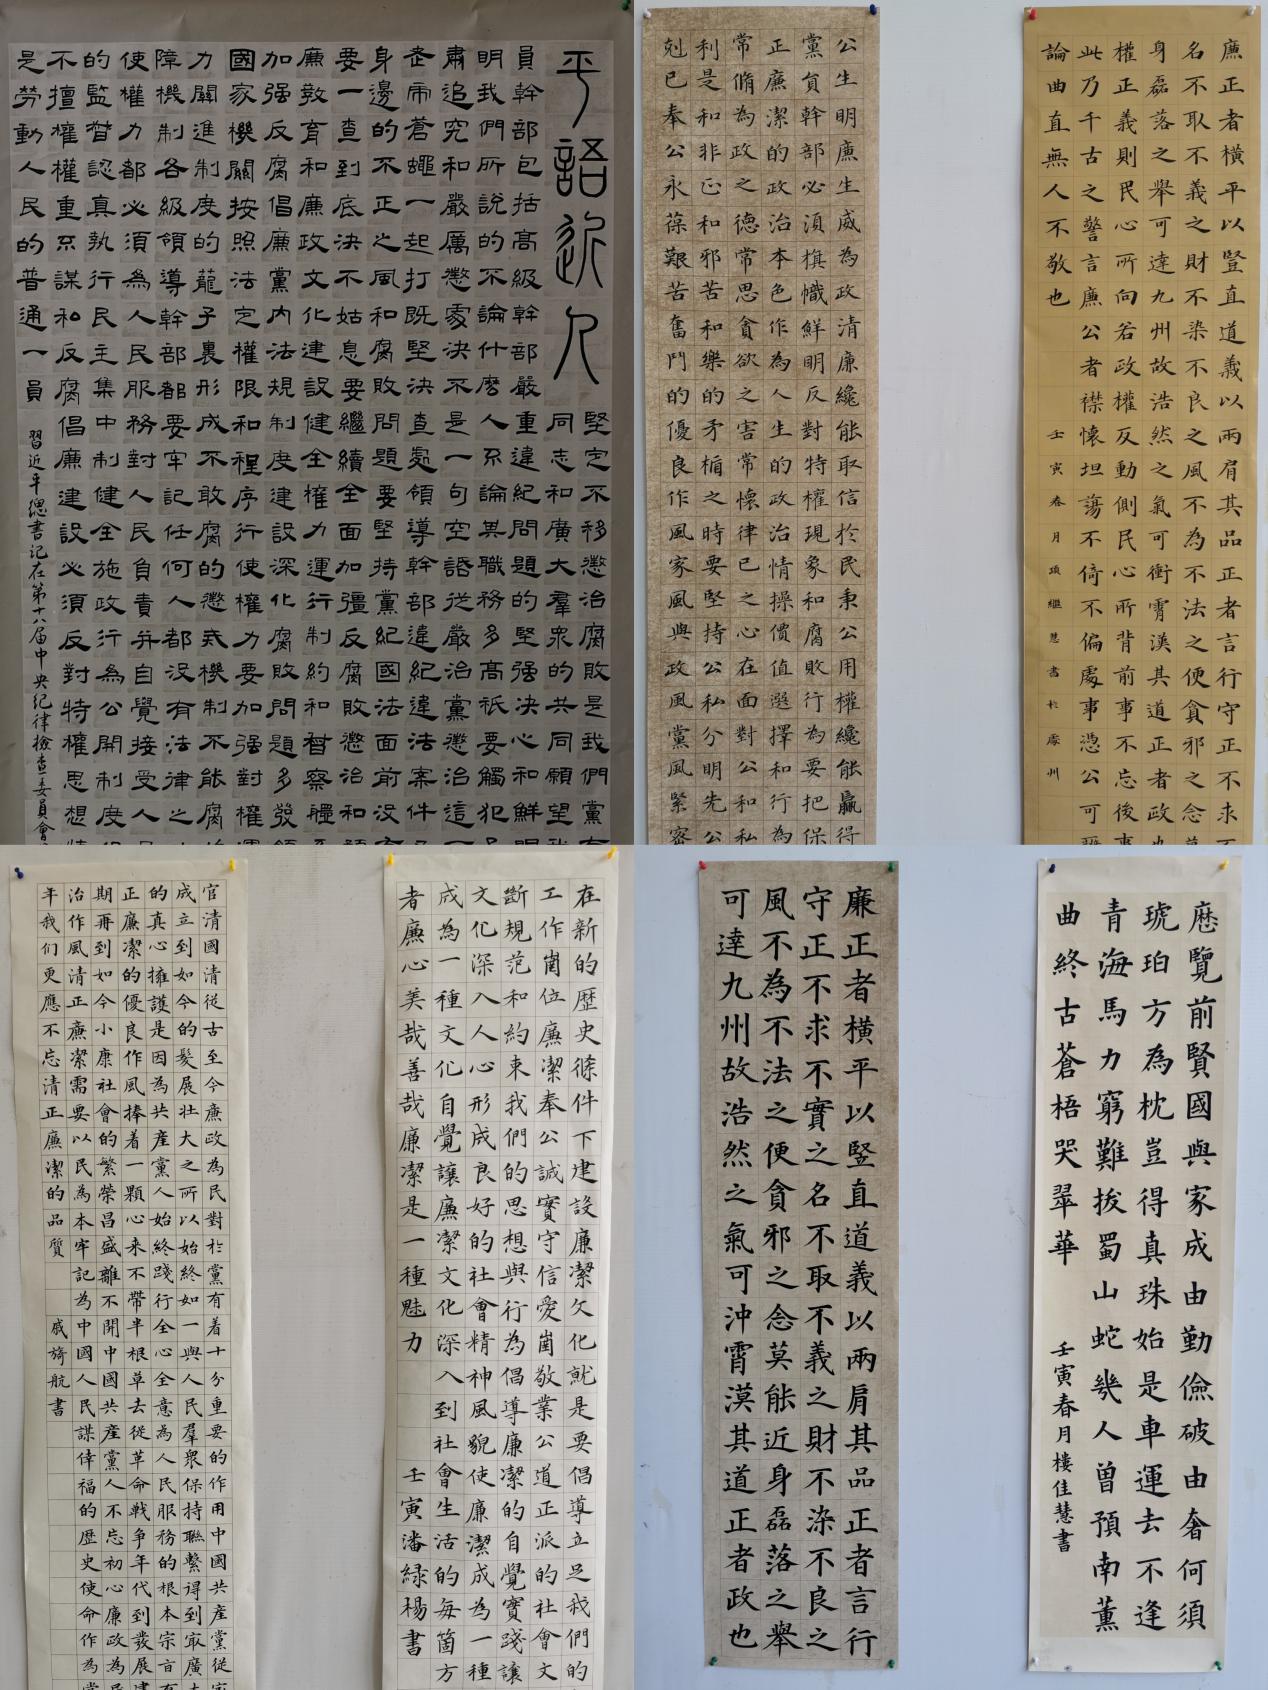 平語近人
堅定不移懲治腐敗是我們黨有
同志和廣大羣衆的共同願望我
員幹部包括高級幹部嚴重違紀問題的堅强決心和鮮明
明我們所說的不論什麽人不論其職務多高祇要觸犯
肅追究和嚴厲懲處決不是一句空話從嚴治黨懲治這一
老虎蒼蠅一起打既堅決查處領導幹部違紀違法案件
身邊的不正之風和腐敗問題要堅持黨紀國法面前没
要一查到底決不姑息要繼續全面加彊反腐敗懲治和
廉教育和廉政文化建設健全權力運行制約和督察體
加强反腐倡廉黨内法規制度建設深化腐敗問題多發領
國家機關按照法定權限和程序行使權力要加强對權
力關進制度的蘢子裏形成不敢腐的懲戒機制不能腐
障機制各級領導幹部都要牢記任何人都没有法律之
使權力都必須為人民服務對人民負責并自覺接受人
的監督認真執行民主集中制健全施政行為公開制度
不擅權權重不謀和反腐倡廉建設必須反對特權思想
是勞動人民的普通一員
習近平總書記在第十八届中央紀律檢查委員會
公生明廉生威為政清廉纔能取信於民秉公用權纔能贏得
黨員幹部必須旗幟鮮明反對特權現象和腐敗行為要把保
正廉潔的政治本色作為人生的政治情操價值選擇和行為
常脩為政之德常思貪欲之害常懷律己之心在面對公和私
利是和非正和邪苦和樂的矛楯之時要堅持公私分明先公
剋己奉公永葆艱苦奮鬥的優良作風家風與政風黨風緊密
廉正者橫平以豎直道義以兩肩其品正者言行守正不求不
名不取不義之財不染不良之風不為不法之便貪邪之念莫
身磊落之舉可達九州故浩然之氣可衝霄漢其道正者政也
權正義則民心所向若政權反動側民心所背前事不忘後事
此乃千古之警言廉公者襟懷坦蕩不倚不偏處事憑公可
論曲直無人不敬也
壬寅春月項繼慧書於處州
官清國清從古至今廉政為民對於黨有着十分重要的作用中國共產黨從
成立到如今的髮展壯大之所以始終如一與人民羣衆保持聯繫得到最廣大
的真心擁護是因為共產黨人始終踐行全心全意為人民服務的根本宗旨有
正廉潔的優良作風捧着一顆心来不帶半根草去從革命戰争年代到發展建
期再到如今小康社會的繁榮昌盛離不開中國共產黨人不忘初心廉政為民
治作風清正廉潔需要以民為本牢記為中國人民謀倖福的歷史使命作為當
年我们更應不忘清正廉潔的品質
戚旖航書
在新的歷史條件下建設廉潔文化就是要倡導立足我們的
工作崗位廉潔奉公誠實守信愛崗敬業公道正派的社會文
斷規范和約束我們的思想與行為倡導廉潔的自覺實踐讓
文化深入人心形成良好的社會精神風貌使廉潔成為一種
成為一種文化自覺讓廉潔文化深入到社會生活的每箇方
者廉心美哉善哉廉潔是一種魅力
壬寅潘緑楊書
廉正者橫平以竪直道義以兩肩其品正者言行
守正不求不實之名不取不義之財不染不良之
風不為不法之便貪邪之念莫能近身磊落之舉
可達九州故浩然之氣可沖霄漠其道正者政也
歷覽前賢國與家成由勤儉破由奢何須
琥珀方為枕豈得真珠始是車運去不逢
青海馬力窮難拔蜀山蛇幾人曾預南薰
曲終古蒼梧哭翠華
壬寅春月樓佳慧書